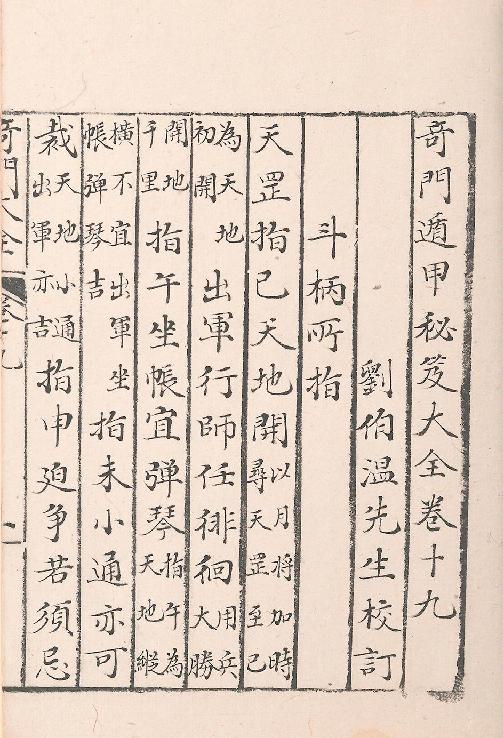 奇門遁甲秘笈大全卷十九
劉伯温先生校訂
斗柄所指
天罡指已天地開以月將加時尋天罡至已
為天地初開出軍行師任徘徊用兵大勝
開地千里指午坐帳宜彈琴指午為天地縱
橫不宜出軍坐帳彈琴吉指未小通亦可
裁天地小通出軍亦吉指申廹争若須忌
奇門大全 卷十九 一